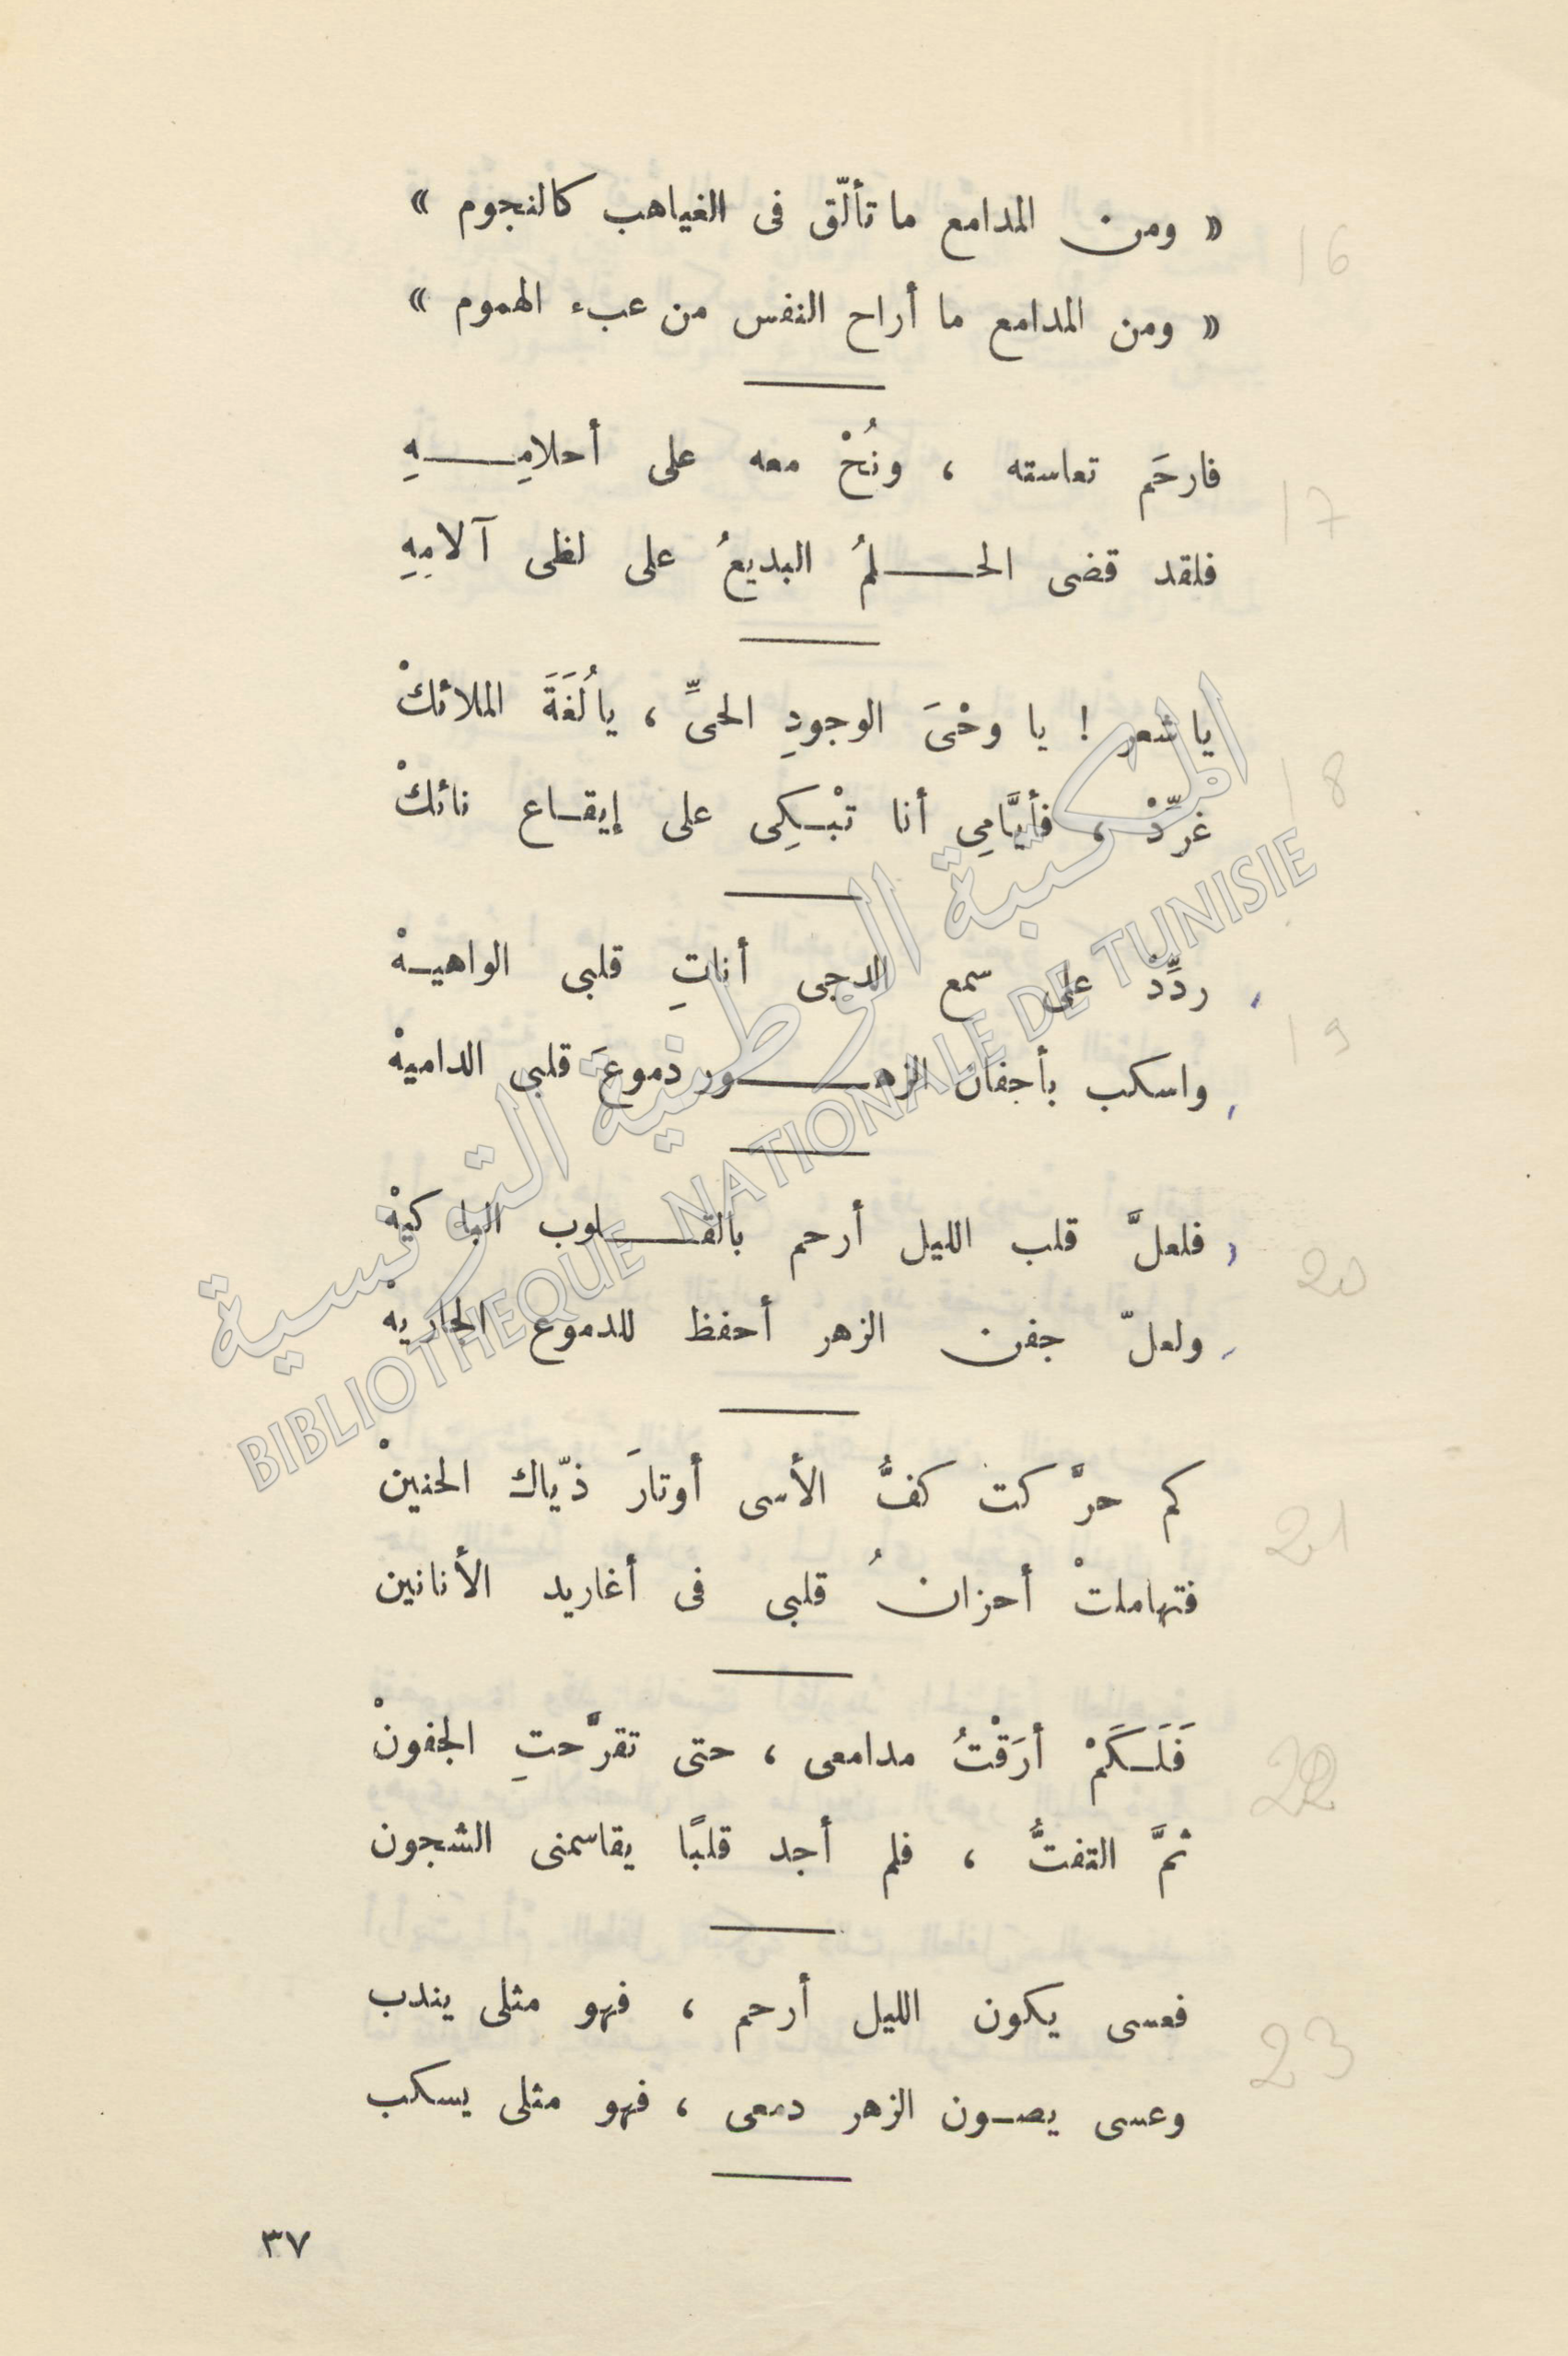 « ومن المدامع ما تألّق فى الغياهب كالنجوم »
16
« ومن المدامع ما أراح النفس من عبء الهموم »
فارحَم تعاسته ، ونُحْ معه على أحلامِهِ
17
فلقد قضى الحلمُ البديعُ على لظى آلامِهِ
يا شعر ! يا وحْىَ الوجودِ الحىِّ ، يا لُغَةَ الملائكْ
18
غرِّدْ ، فأيَّامِى أنا تبْكِى على إيقاع نائكْ
ردِّدْ على سمع الدجى أناتِ قلبى الواهيهْ
19
واسكب بأجفان الزهور دموعَ قلبى الداميهْ
فلعلَّ قلب الليل أرحم بالقلوب الباكيهْ
20
ولعلّ جفن الزهر أحفظ للدموع الجاريهْ
كم حرَّكت كفُّ الأسى أوتارَ ذيّاك الحنينْ
21
فتهاملتْ أحزانُ قلبى فى أغاريد الأنانين
فَلَكَمْ أرَقْتُ مدامعى ، حتى تقرَّحتِ الجفونْ
22
ثمَّ التفتُّ ، فلم أجد قلبًا يقاسمنى الشجون
فعسى يكون الليل أرحم ، فهو مثلى يندب
23
وعسى يصون الزهر دمعى ، فهو مثلى يسكب
٣٧
المكتبة الوطنية التونسية
BIBLIOTHEQUE NATIONALE DE TUNISIE